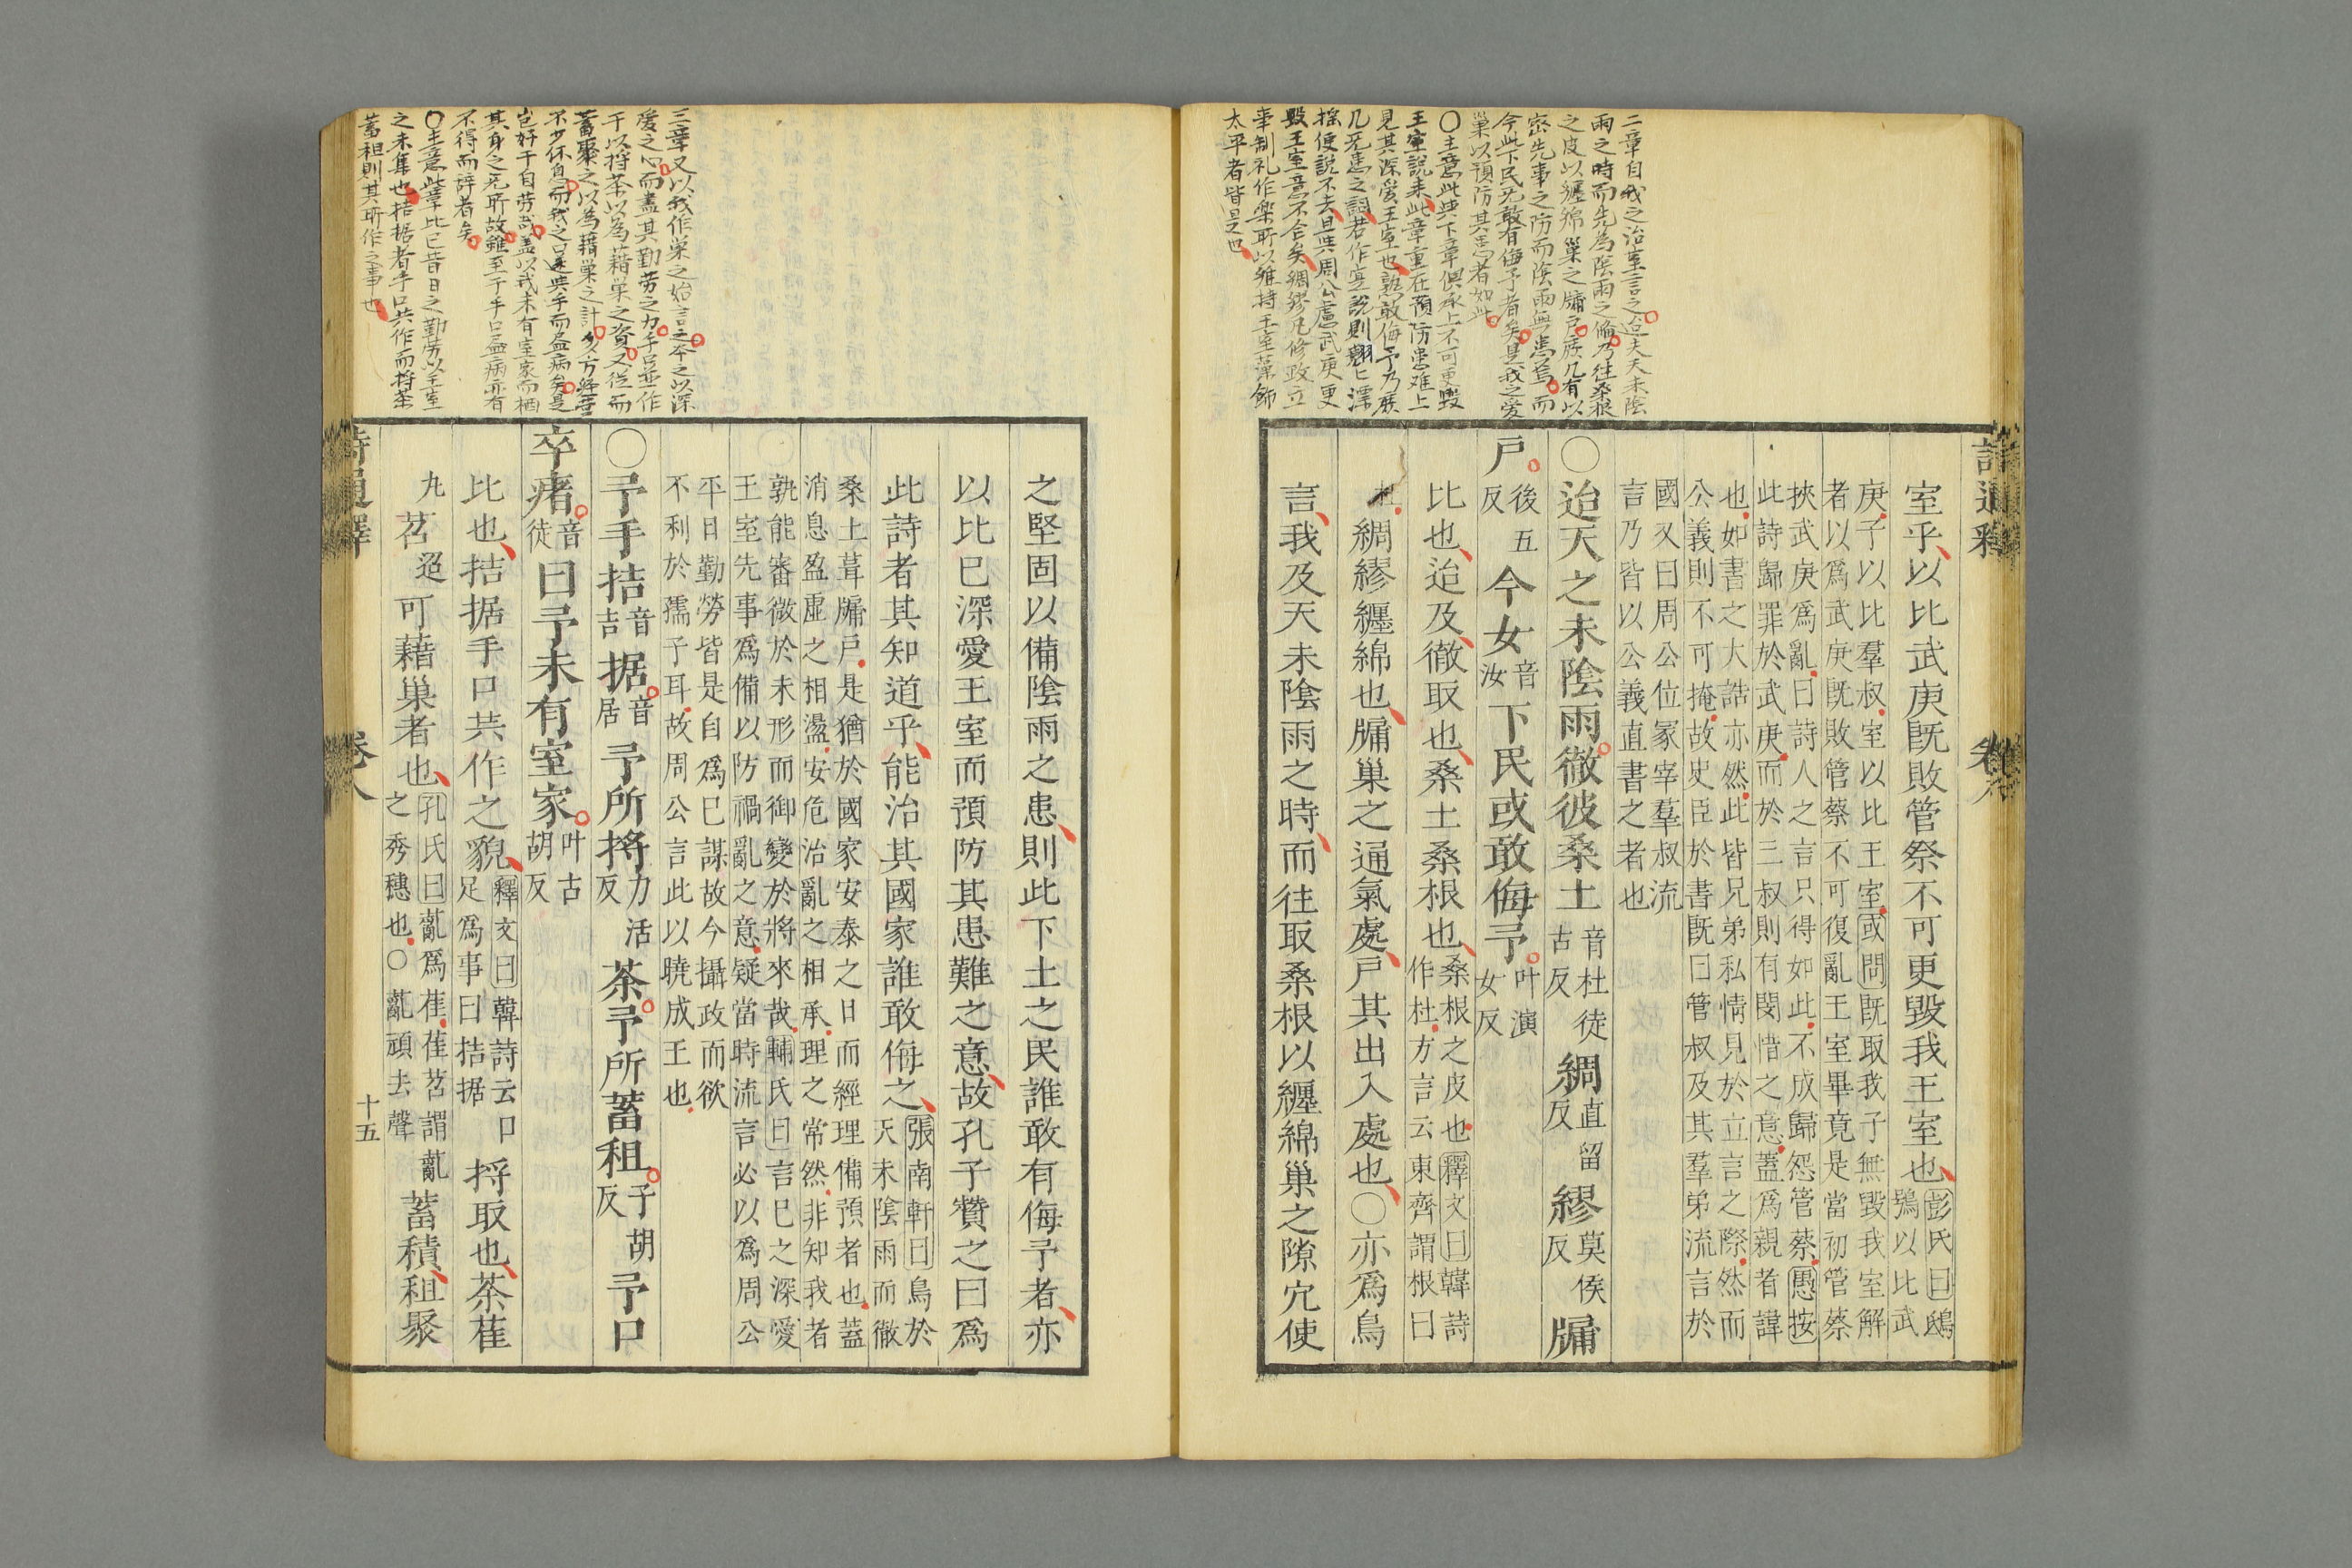 二章自我之治室言之迨夫天未陰
雨之時而先為陰雨之備乃往桑根
之皮以纏綿巢之牖戶庶几有以
密先事之防而陰雨無患焉而
今此下民旡敢有侮予者矣是我之愛
巢以預防其患者如此
〇主意此與下章俱承上不可更毀
王室說来此章重在預防患难上
見其深愛王室也孰敢侮予乃庶
几旡患之詞若作寔說則翹匕漂
搖便說不去且與周公慮武庚更
毀王室意不合矣綢繆凡修政立
事制礼作樂所以維持王室藻飾
太平者皆是也
詩通釋 卷八
室乎以比武庚既敗管祭不可更毀我王室也彭氏曰鴟
鴞以比武
庚子以比羣叔室以比王室或問既取我子無毀我室解
者以爲武庚既敗管蔡不可復亂王室畢竟是當初管蔡
挾武庚爲亂曰詩人之言只得如此不成歸怨管蔡愚按
此詩歸罪於武庚而於三叔則有閔惜之意蓋爲親者諱
也如書之大誥亦然此皆兄弟私情見於立言之際然而
公義則不可掩故史臣於書既曰管叔及其羣弟流言於
國又曰周公位冢宰羣叔流
言乃皆以公義直書之者也
〇迨天之未陰雨徹彼桑土音杜徒古反綢直留反繆莫侯反牖
戶後五反今女音汝下民或敢侮予叶演女反
比也迨及徹取也桑土桑根也桑根之皮也釋文曰韓詩
作杜方言云東齊謂根曰
杜綢繆纏綿也牖巢之通氣處戶其出入處也〇亦爲鳥
言我及天未陰雨之時而往取桑根以纏綿巢之隙穴使
三章又以我作巢之始言之夲之以深
愛之心而盡其勤劳之力手口並作
于以捋荼以為藉巢之資又從而
蓄聚之以為藉巢之計多方經營
不少休息而我之口遂與手而盡病矣是
豈好于自劳哉盖以我未有室家而栖
其身之旡所故雖至于手口盡病亦有
不得而辞者矣
〇主意此章比已昔日之勤劳以王室
之未集也拮据者手口共作而捋荼
蓄租則其所作之事也
之堅固以備陰雨之患則此下土之民誰敢有侮予者亦
以比已深愛王室而預防其患難之意故孔子贊之曰爲
此詩者其知道乎能治其國家誰敢侮之張南軒曰鳥於
天未陰雨而徹
桑土葺牖戶是猶於國家安泰之日而經理備預者也蓋
消息盈虛之相盪安危治亂之相承理之常然非知我者
孰能審微於未形而御變於將來哉輔氏曰言已之深愛
王室先事爲備以防禍亂之意疑當時流言必以爲周公
平日勤勞皆是自爲已謀故今攝政而欲
不利於孺子耳故周公言此以曉成王也
〇予手拮音吉据音居予所捋力活反荼予所蓄租子胡反予口
卒瘏音徒曰予未有室家叶古胡反
比也拮据手口共作之貌釋文曰韓詩云口
足爲事曰拮据捋取也荼萑
苕可藉巢者也孔氏曰薍爲萑萑苕謂薍
之秀穗也〇薍頑去聲蓄積租聚
詩通釋 卷八 十五